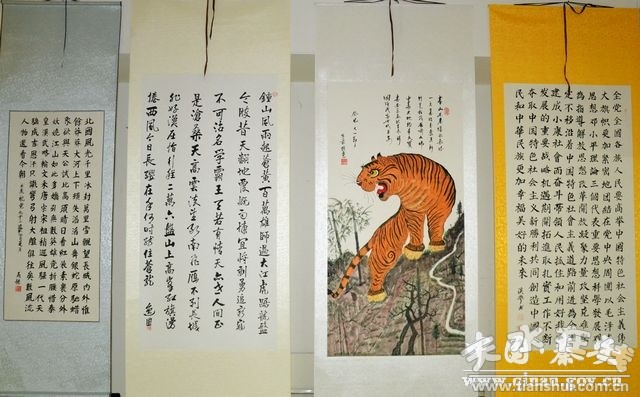 北國風光千里冰封萬里雪飄望長城內外惟
餘莽莽大河上下頓失滔滔山舞銀蛇原馳蠟
象欲與天公試比高須晴日看紅裝素裹分外
妖嬈江山如此多嬌引無數英雄競折腰惜秦
皇漢武略輸文采唐宗宋祖稍遜風騷一代天
驕成吉思汗只識彎弓射大雕俱往矣數風流
人物還看今朝
鍾山風雨起蒼黃百萬雄師過大江虎踞龍盤
今勝昔天翻地覆慨而慷宜將剩勇追窮寇
不可沽名學霸王天若有情天亦老人间正
是滄桑天高雲淡望斷南飛雁不到長城
非好漢屈指行程二萬六盤山上高峰紅旗漫
捲西風今日長纓在手何時縛住蒼龍
全黨全國各族人民要高舉中國特色社會主義偉
大旗幟更加緊密地團結在黨中央周圍以毛澤東
思想鄧小平理論三個代表重要思想科學發展觀
為指導解放思想改革開放凝聚力量攻堅克難堅
定不移沿着中國特色社會主義道路前進為全面
建成小康社會而奮鬥帶領人民抓住和用好我國
發展的重要戰略機遇期開拓進取扎實工作不斷
奪取中國特色社會主義新勝利共同創造中國人
民和中華民族更加幸福美好的未來
www.qinan.gov.cn
www.tianshui.com.cn